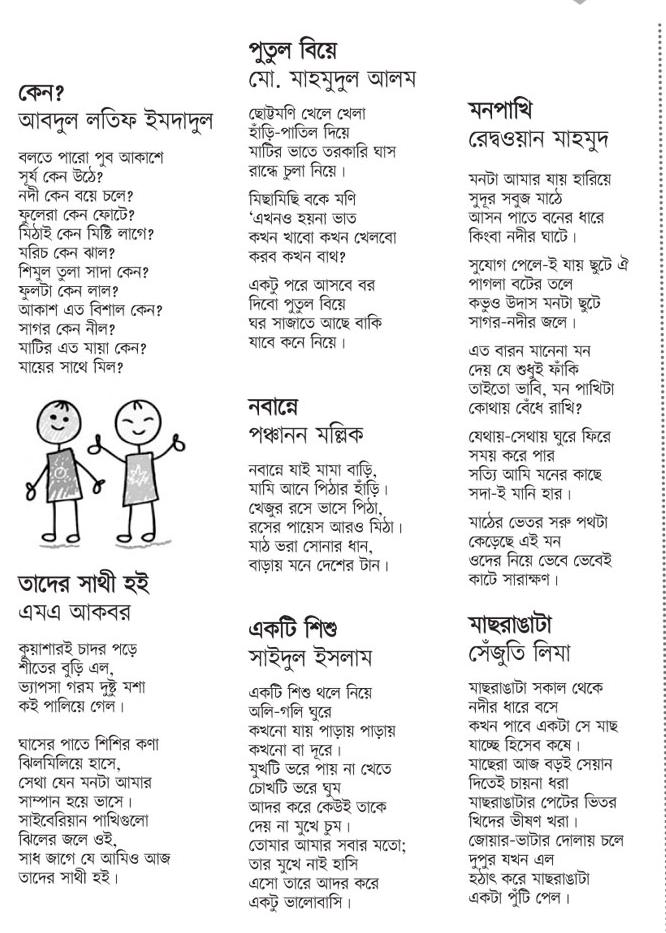 কেন?
আবদুল লতিফ ইমদাদুল
বলতে পারো পুব আকাশে
সূর্য কেন উঠে?
নদী কেন বয়ে চলে?
ফুলেরা কেন ফোটে?
মিঠাই কেন মিষ্টি লাগে?
মরিচ কেন ঝাল?
শিমুল তুলা সাদা কেন?
ফুলটা কেন লাল?
আকাশ এত বিশাল কেন?
সাগর কেন নীল?
মাটির এত মায়া কেন?
মায়ের সাথে মিল?
তাদের সাথী হই
এমএ আকবর
কুয়াশারই চাদর পড়ে
শীতের বুড়ি এল,
ভ্যাপসা গরম দুষ্টু মশা
কই পালিয়ে গেল।
ঘাসের পাতে শিশির কণা
ঝিলমিলিয়ে হাসে,
সেথা যেন মনটা আমার
সাম্পান হয়ে ভাসে।
সাইবেরিয়ান পাখিগুলো
ঝিলের জলে ওই,
সাধ জাগে যে আমিও আজ
তাদের সাথী হই।
পুতুল বিয়ে
মো. মাহমুদুল আলম
ছোট্টমণি খেলে খেলা
হাঁড়ি-পাতিল দিয়ে
মাটির ভাতে তরকারি ঘাস
রান্ধে চুলা নিয়ে।
মিছামিছি বকে মণি
‘এখনও হয়না ভাত
কখন খাবো কখন খেলবো
করব কখন বাথ?
একটু পরে আসবে বর
দিবো পুতুল বিয়ে
ঘর সাজাতে আছে বাকি
যাবে কনে নিয়ে।
নবান্নে
পঞ্চানন মল্লিক
নবান্নে যাই মামা বাড়ি,
মামি আনে পিঠার হাঁড়ি।
খেজুর রসে ভাসে পিঠা,
রসের পায়েস আরও মিঠা।
মাঠ ভরা সোনার ধান,
বাড়ায় মনে দেশের টান।
একটি শিশু
সাইদুল ইসলাম
একটি শিশু থলে নিয়ে
অলি-গলি ঘুরে
কখনো যায় পাড়ায় পাড়ায়
কখনো বা দূরে।
মুখটি ভরে পায় না খেতে
চোখটি ভরে ঘুম
আদর করে কেউই তাকে
দেয় না মুখে চুম।
তোমার আমার সবার মতো;
তার মুখে নাই হাসি
এসো তারে আদর করে
একটু ভালোবাসি।
মনপাখি
রেদ্বওয়ান মাহমুদ
মনটা আমার যায় হারিয়ে
সুদূর সবুজ মাঠে
আসন পাতে বনের ধারে
কিংবা নদীর ঘাটে।
সুযোগ পেলে-ই যায় ছুটে ঐ
পাগলা বটের তলে
কভুও উদাস মনটা ছুটে
সাগর-নদীর জলে।
এত বারন মানেনা মন
দেয় যে শুধুই ফাঁকি
তাইতো ভাবি, মন পাখিটা
কোথায় বেঁধে রাখি?
যেথায়-সেথায় ঘুরে ফিরে
সময় করে পার
সত্যি আমি মনের কাছে
সদা-ই মানি হার।
মাঠের ভেতর সরু পথটা
কেড়েছে এই মন
ওদের নিয়ে ভেবে ভেবেই
কাটে সারাক্ষণ।
মাছরাঙাটা
সেঁজুতি লিমা
মাছরাঙাটা সকাল থেকে
নদীর ধারে বসে
কখন পাবে একটা সে মাছ
যাচ্ছে হিসেব কষে।
মাছেরা আজ বড়ই সেয়ান
দিতেই চায়না ধরা
মাছরাঙাটার পেটের ভিতর
খিদের ভীষণ খরা।
জোয়ার-ভাটার দোলায় চলে
দুপুর যখন এল
হঠাৎ করে মাছরাঙাটা
একটা পুঁটি পেল।